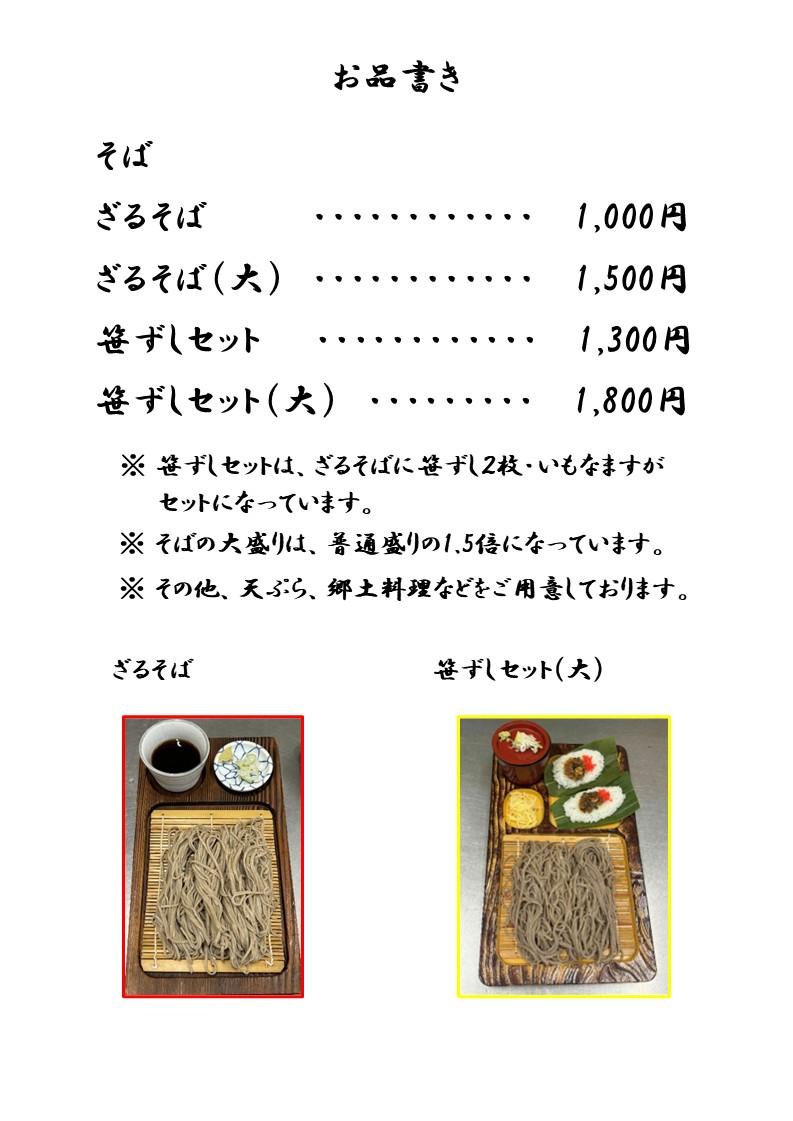 お品書き
そば
ざるそば ・・・・・・・・・・・・ 1,000円
ざるそば(大) ・・・・・・・・・・・・ 1,500円
笹ずしセット ・・・・・・・・・・・・ 1,300円
笹ずしセット(大) ・・・・・・・・・ 1,800円
※ 笹ずしセットは、ざるそばに笹ずし2枚・いもなますが
セットになっています。
※ そばの大盛りは、普通盛りの1.5倍になっています。
※ その他、天ぷら、郷土料理などをご用意しております。
ざるそば 笹ずしセット(大)